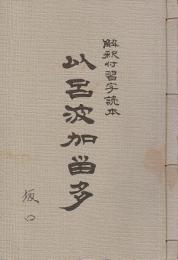 解釈付習字読本
以呂波加留多
坂口